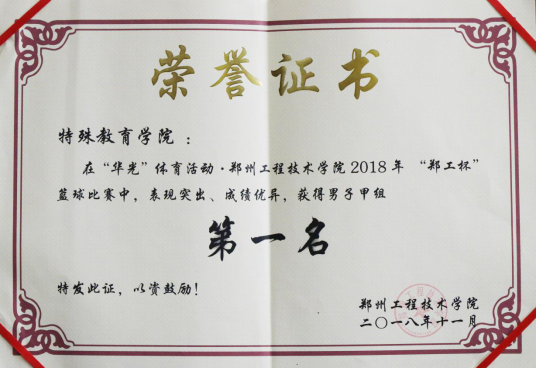 荣誉证书
特殊教育学院：
在“华光”体育活动·郑州工程技术学院2018年 “郑工杯”
篮球比赛中，表现突出、成绩优异，获得男子甲组
第一名
特发此证，以资鼓励！
郑州工程技术学院
二〇一八年十一月